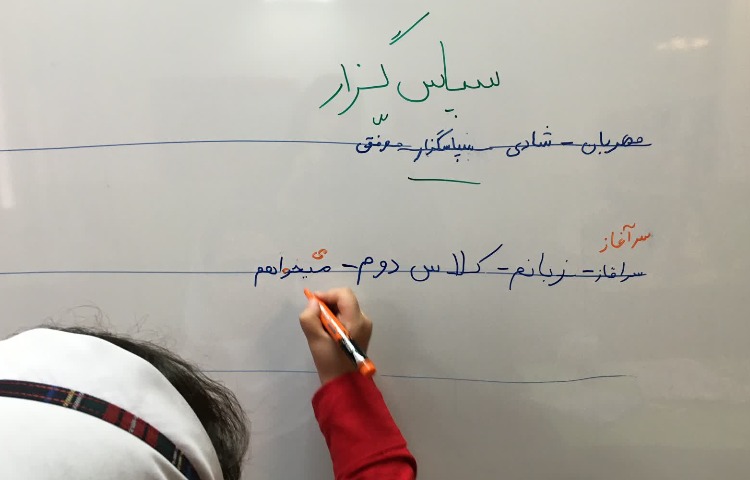 سپاس گزار
مهربان - شادی - سپاسگزار - موفّق
سرآغاز
سراغاز - زبانم - کلاس دوم - میخواهم